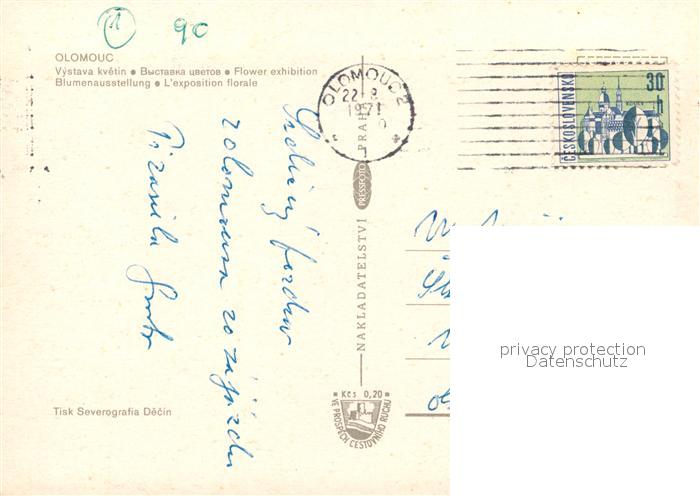 90
OLOMOUC
Výstava květin ● Выставка цветов ● Flower exhibition
Blumenausstellung ● L'exposition florale
OLOMOUC 2
22.-8.
1971
ČESKOSLOVENSKO
30 h
Srdečný pozdrav
z Olomouce ze zájezdu
NAKLADATELSTVÍ PRESSFOTO PRAHA
privacy protection
Datenschutz
Kčs 0,20
VE PROSPĚCH CESTOVNÍHO RUCHU
Tisk Severografia Děčín